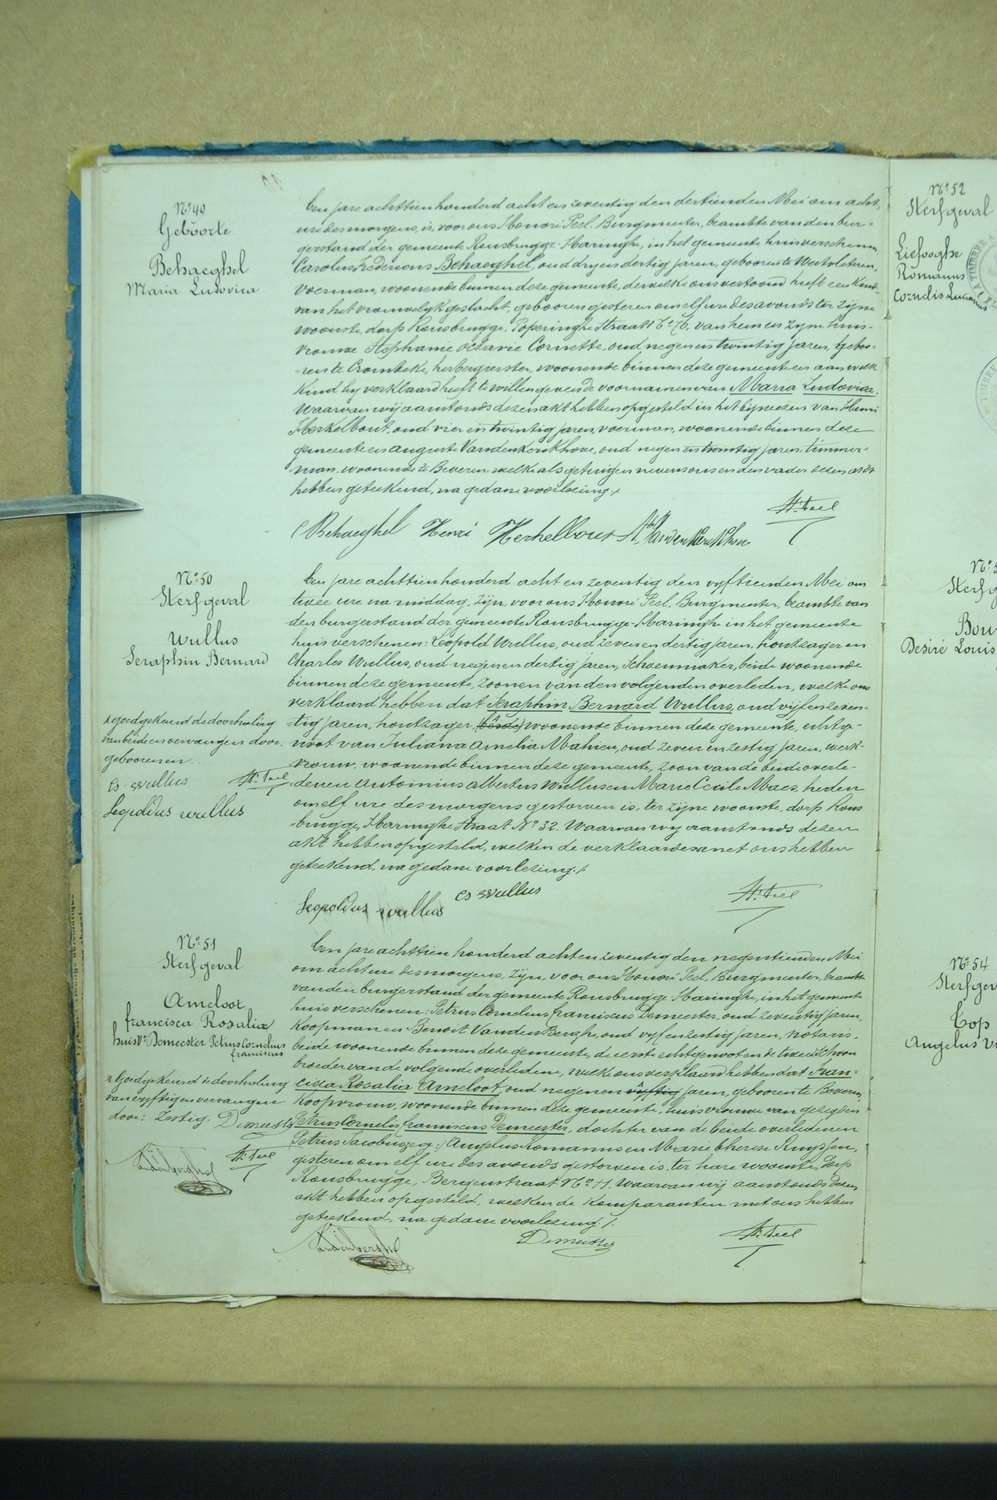 N.º 49
Geboorte
Behaeghel
Maria Ludovica
Een jare achttien honderd acht en zeventig den dertienden Mei om acht
ure des morgens, is voor ons Honoré Peel, Burgmeester, beambte van den bur-
gerstand der gemeente Rousbrugge-Haringhe, in het gemeente huis verschenen
Carolus Federicus Behaeghel, oud dry en dertig jaren, geboren te Westvleteren,
Voerman, woonende binnen deze gemeente, dewelke ons vertoond heeft een kind
van het vrouwelyk geslacht, geboren gisteren om elf ure des avonds ter zijne
woonste, dorp Rousbrugge, Poperinghe Straat N.º 76, van hem en zyne huis-
vrouw Stephanie Octavie Cornette, oud negen en twintig jaren, gebo-
ren te Crombeke, herbergierster, woonende binnen deze gemeente en aan welk
Kind hy verklaard heeft te willen geven de voornamen van Maria Ludovica.
Waarvan wij aanstonds dezen akt hebben opgesteld in het bijwezen van Henri
Herkelbout, oud vier en twintig jaren, voerman, woonende binnen deze
gemeente en Auguste Vandenkerckhove, oud negen en twintig jaren, timmer-
man, woonende te Beveren welke als getuigen nevens ons en den vader dezen akt
hebben geteekend, na gedane voorlezing./.
H. Peel
C Behaeghel Henri Herkelbout A. Vandenkerckhove
N.º 50
Sterfgeval
Wullus
Seraphin Bernard
Een jare achttien honderd acht en zeventig den vyftienden Mei om
twee ure na middag, zijn, voor ons Honoré Peel, Burgmeester, beambte van
den burgerstand der gemeente Rousbrugge-Haringhe in het gemeente
huis verschenen: Leopold Wullus, oud zeven en dertig jaren, houtzager en
Charles Wullus, oud negen en dertig jaren, Schoenmaker, beide woonende
binnen deze gemeente, zoonen van den volgenden overleden, welke ons
verklaard hebben dat Seraphin Bernard Wullus, oud vijf en zeven-
tig jaren, houtzager, woonende binnen deze gemeente, echtge-
noot van Juliana Amelia Mahieu, oud zeven en zestig jaren, werk-
vrouw, woonende binnen deze gemeente, zoon van de beide overle-
denen Antonius Albertus Wullus en Marie Cecile Maes, heden
om elf ure des morgens gestorven is, ter zijne woonste, dorp Rous
brugge, Haringhe Straat N.º 32. Waarvan wy aanstonds dezen
akt hebben opgesteld, welken de verklaarders met ons hebben
geteekend, na gedane voorlezing./.
x Goedgekeurd de doorhaling
van beide en vervangen door:
geboren en
Cs Wullus H. Peel
Leopoldus Wullus
Leopoldus Wullus Cs Wullus H. Peel
N.º 51
Sterfgeval
Ameloot
Francisca Rosalia
huisv.e Demeester Petrus Cornelius
Franciscus
Een jare achttien honderd acht en zeventig den negentienden Mei
om acht ure des morgens, zijn, voor ons Honoré Peel, Burgmeester, beambte
van den burgerstand der gemeente Rousbrugge-Haringhe, in het gemeente
huis verschenen: Petrus Cornelius Franciscus Demeester, oud zeventig jaren,
Koopman en Benoit Vanden Berghe, oud vyf en zestig jaren, Notaris,
beide woonende binnen deze gemeente, de eerste echtgenoot en de tweede schoon
broeder van de volgende overledene, welke ons verklaard hebben dat Fran-
cisca Rosalia Ameloot, oud negen en vyftig jaren, geboren te Beveren,
Koopvrouw, woonende binnen deze gemeente, huisvrouw van gezegden
Petrus Cornelius Franciscus Demeester, dochter van de beide overledenen
Petrus Jacobus, gezegd Angelus Romannus en Marie Therese Ruyssen,
gisteren om elf ure des avonds gestorven is, ter hare woonste, dorp
Rousbrugge, Bergenstraat N.º 11. Waarvan wij aanstonds dezen
akt hebben opgesteld, welken de komparanten met ons hebben
geteekend, na gedane voorlezing./.
x Goedgekeurd de doorhaling
van vyftig en vervangen
door: Zestig. Demeester
H. Peel
Demeester H. Peel
N.º 52
Sterfgeval
Liefooghe
Romanus
Cornelis Lucianus
Sterfg
Bou
Desiré Louis
N.º 54
Sterfgev
Top
Angelus Vi